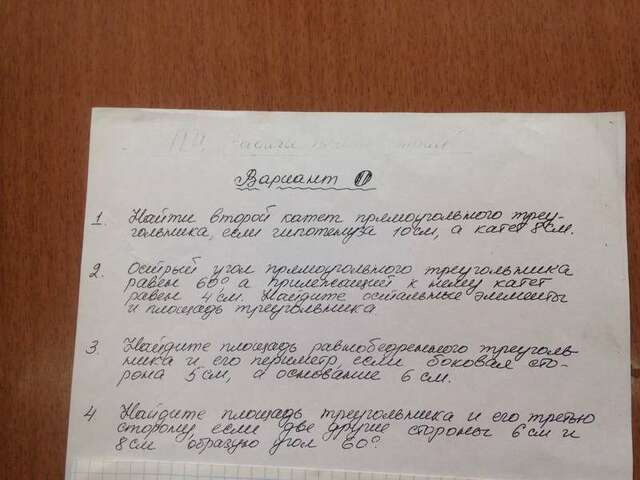 Вариант
1. Найти второй катет прямоугольного треу-
гольника, если гипотенуза 10см, а катет 8см.
2. Острый угол прямоугольного треугольника
равен 60° а прилежащий к нему катет
равен 4см. Найдите остальные элементы
и площадь треугольника.
3. Найдите площадь равнобедренного треуголь-
ника и его периметр, если боковая сто-
рона 5см, а основание 6 см.
4 Найдите площадь треугольника и его третью
сторону, если две другие стороны 6см и
8см образую угол 60°.